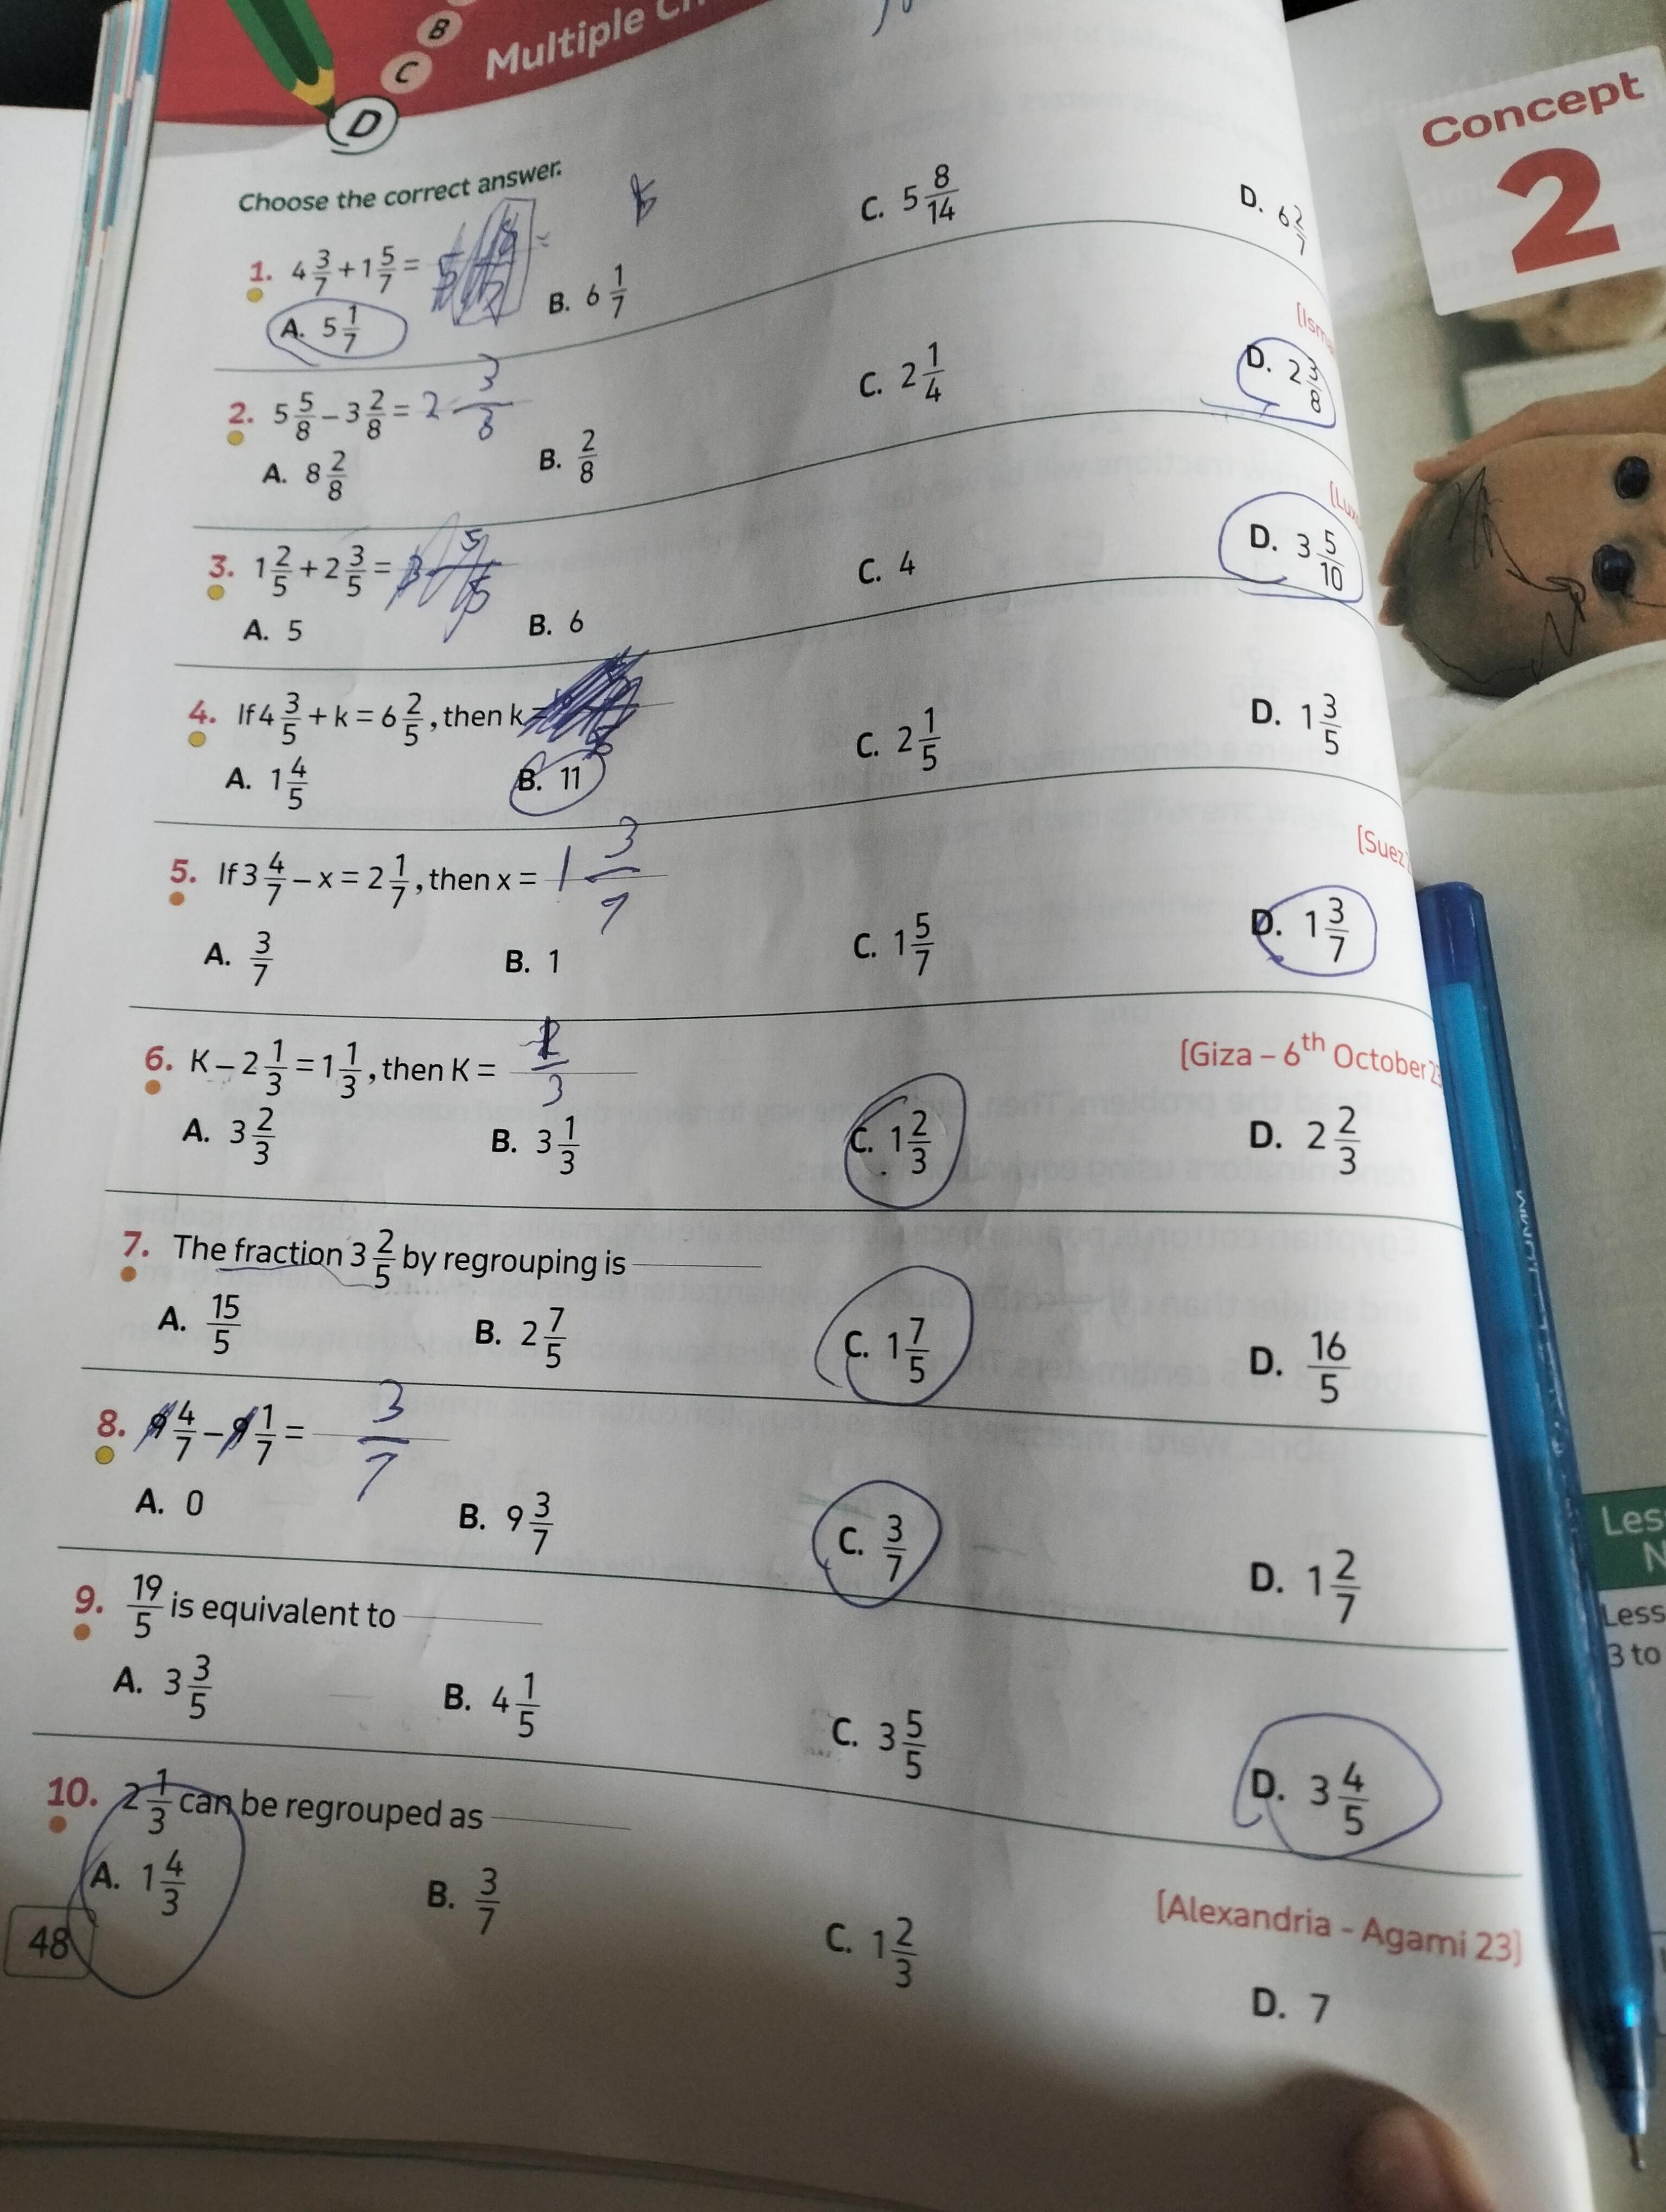 B
C
D
Multiple
Choose the correct answer.
1. 4 3/7 + 1 5/7 =
A. 5 1/7 B. 6 1/7 C. 5 8/14 D. 6 2/7
2. 5 5/8 – 3 2/8 = 2 3/8
A. 8 2/8 B. 2/8 C. 2 1/4 D. 2 3/8
3. 1 2/5 + 2 3/5 =
A. 5 B. 6 C. 4 D. 3 5/10
4. If 4 3/5 + k = 6 2/5, then k =
A. 1 4/5 B. 11 C. 2 1/5 D. 1 3/5
[Suez
5. If 3 4/7 – x = 2 1/7, then x = 1 3/7
A. 3/7 B. 1 C. 1 5/7 D. 1 3/7
[Giza – 6th October 23
6. K – 2 1/3 = 1 1/3, then K =
A. 3 2/3 B. 3 1/3 C. 1 2/3 D. 2 2/3
7. The fraction 3 2/5 by regrouping is
A. 15/5 B. 2 7/5 C. 1 7/5 D. 16/5
8. 9 4/7 – 9 1/7 = 3/7
A. 0 B. 9 3/7 C. 3/7 D. 1 2/7
9. 19/5 is equivalent to
A. 3 3/5 B. 4 1/5 C. 3 5/5 D. 3 4/5
[Alexandria - Agami 23]
10. 2 1/3 can be regrouped as
A. 1 4/3 B. 3/7 C. 1 2/3 D. 7
48
Concept
2
Less
3 to